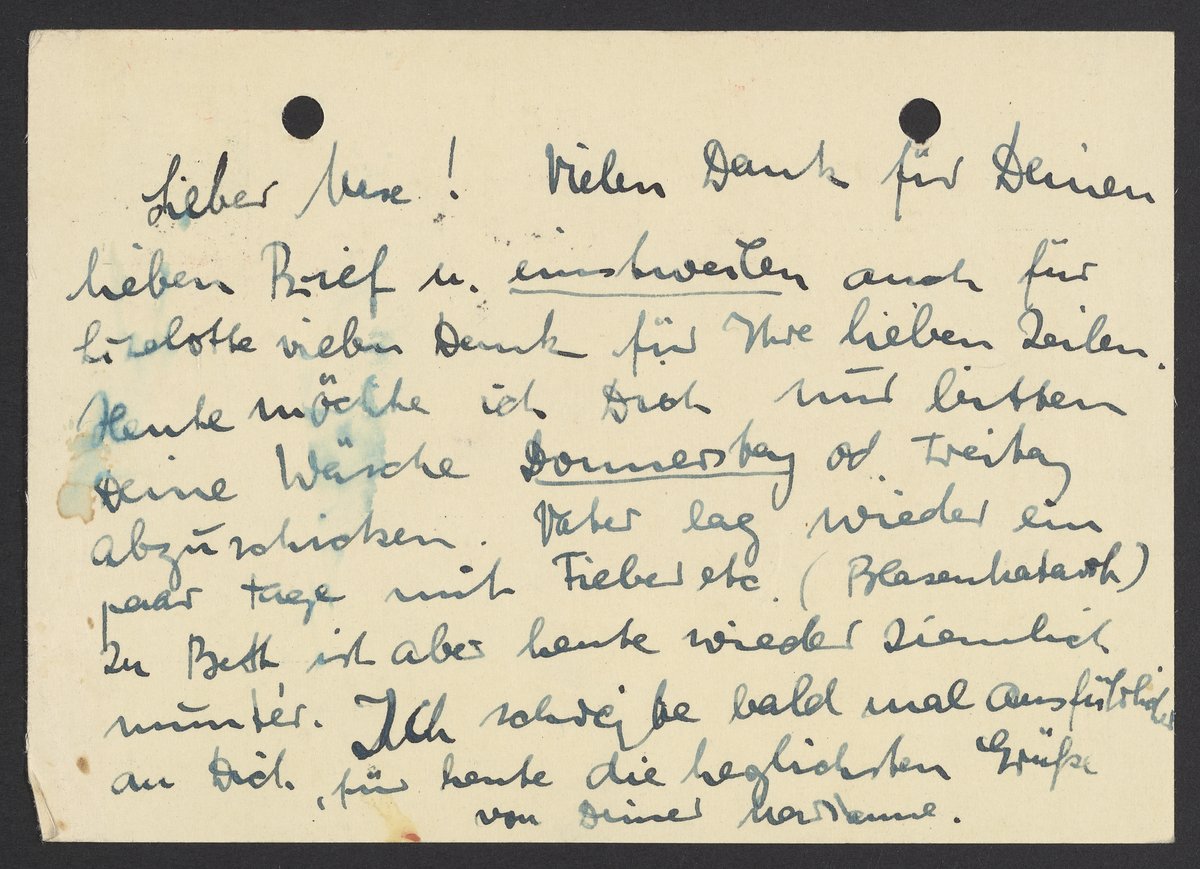 Lieber Maxe! Vielen Dank für Deinen
lieben Brief u. einstweilen auch für
Liselotte vielen Dank für Ihre lieben Zeilen.
Heute möchte ich Dich nur bitten
Deine Wäsche Donnerstag od Freitag
abzuschicken. Vater lag wieder ein
paar Tage mit Fieber etc (Blasenkatarrh)
zu Bett ist aber heute wieder ziemlich
munter. Ich schreibe bald mal ausführlicher
an Dich, für heute die herzlichsten Grüße
von Deiner Marianne.